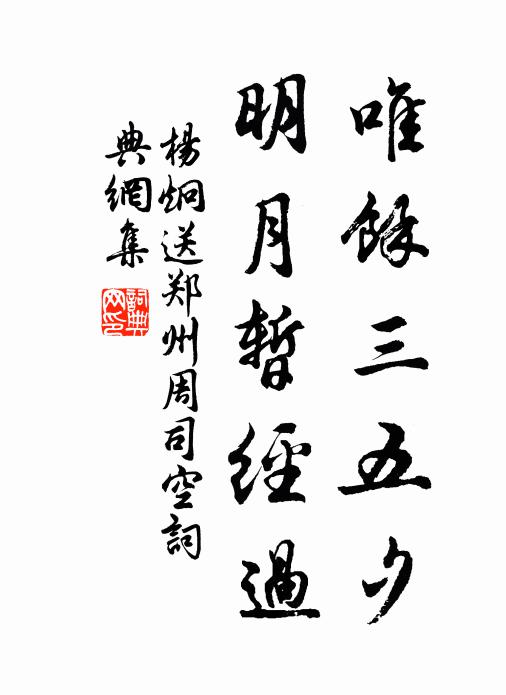 唯餘三五夕
明月暫經過
楊炯送郑州周司空詞
典網集
詞典
网印